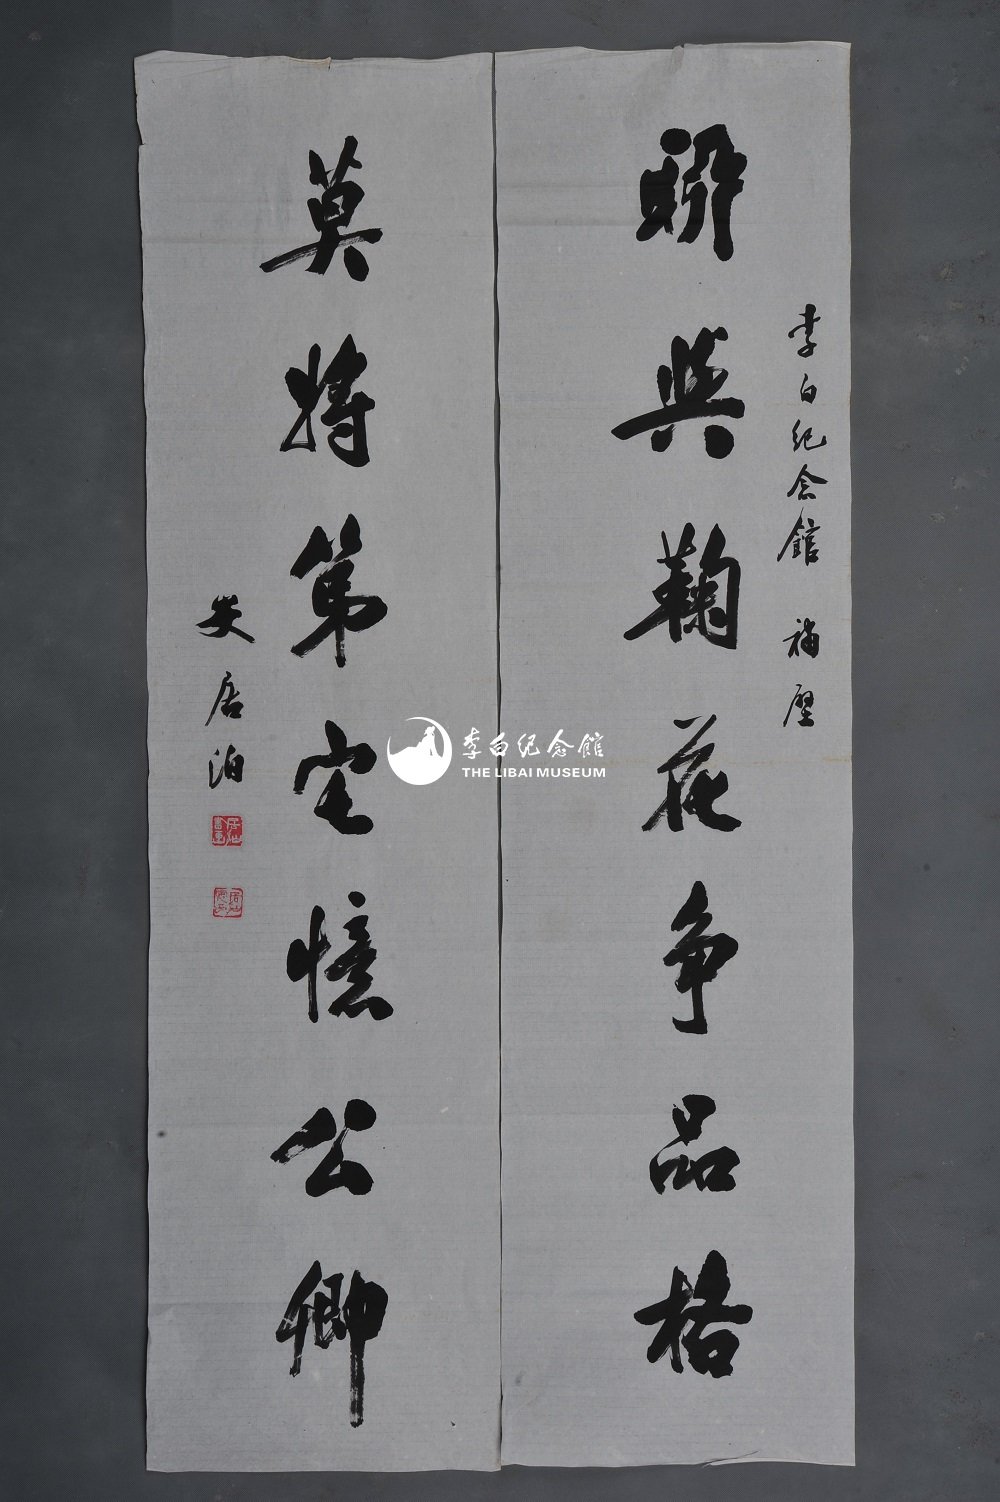 李白纪念馆 補壁
聊与鞠花争品格
莫将第宅憶公卿
吴居泊
李白纪念館
THE LIBAI MUSEUM